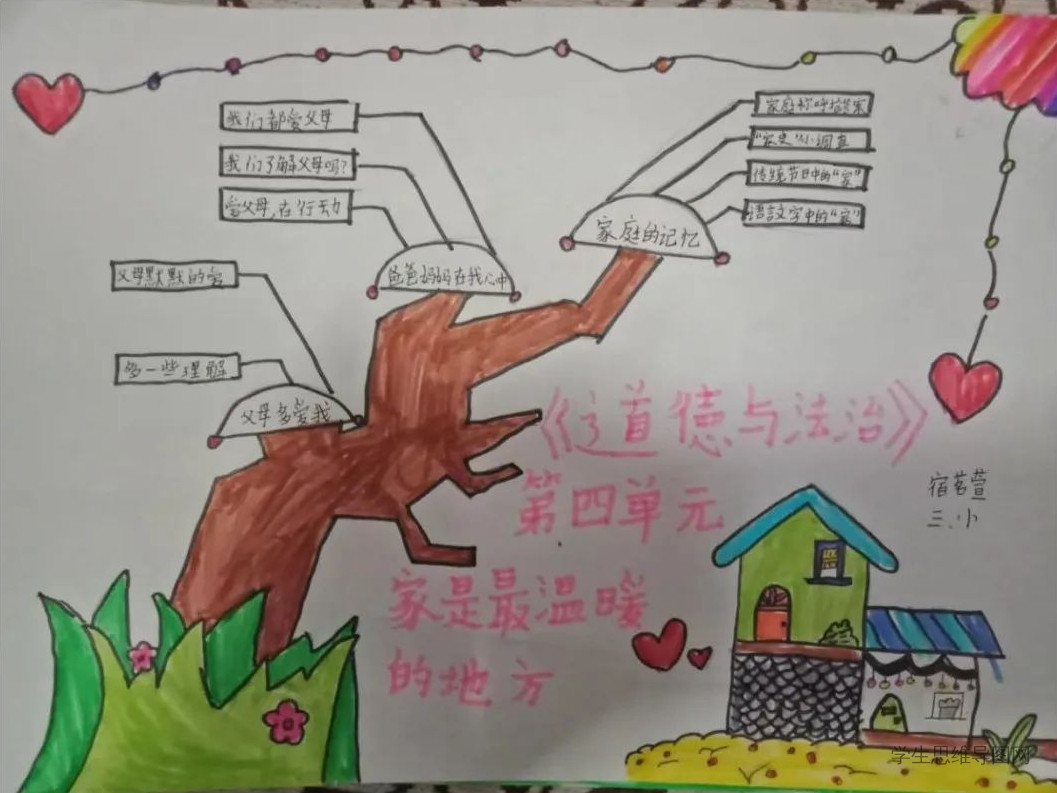 我们都爱父母
我们了解父母吗?
爱父母,在行动
爸爸妈妈在我心中
家庭称呼
"家史"小调查
传统节日中的"家"
语言文字中的"家"
家庭的记忆
父母默默的爱
多一些理解
父母多爱我
《道德与法治》
第四单元
家是最温暖
的地方
宿茗萱
三.小
学生思维导图网